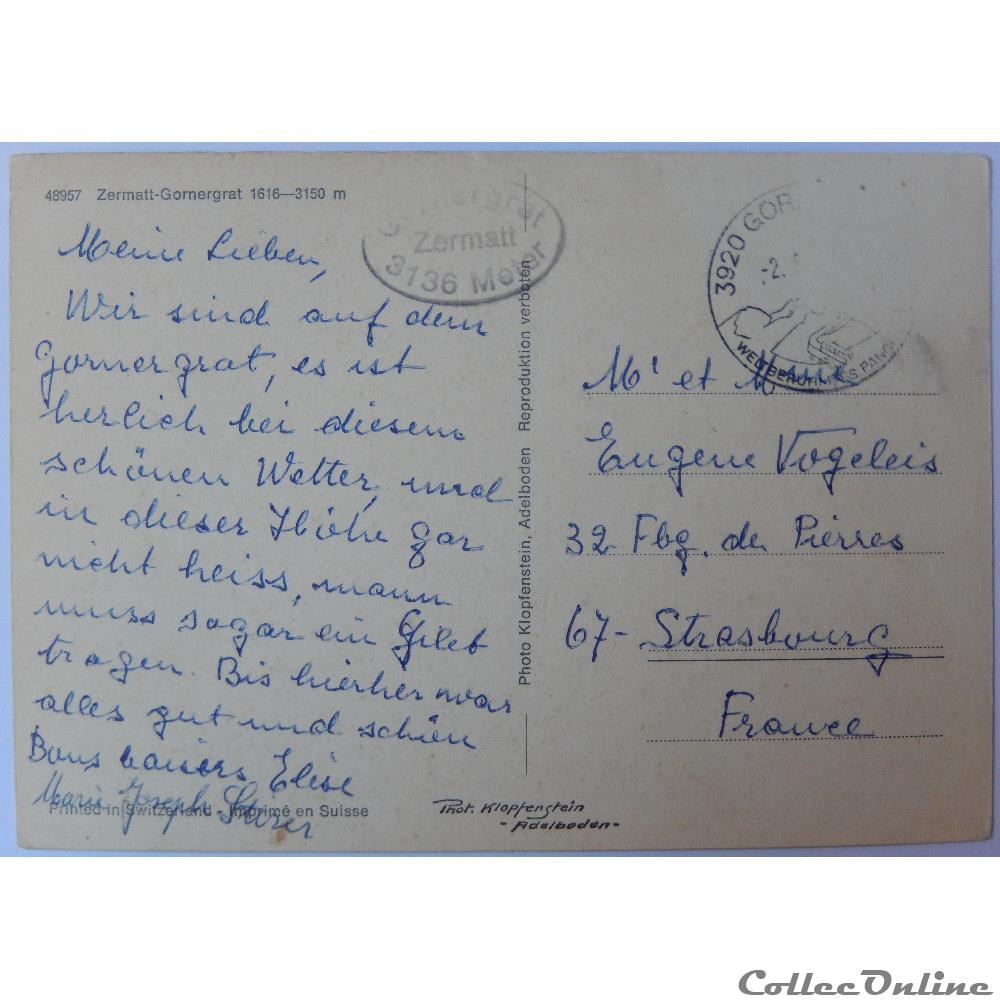 48957 Zermatt-Gornergrat 1616—3150 m
Gornergrat
Zermatt
3136 Meter
Meine Lieben,
Wir sind auf dem
Gornergrat, es ist
herlich bei diesem
schönen Wetter, und
in dieser Höhe gar
nicht heiss, mann
muss sogar ein Gilet
tragen. Bis hierher war
alles gut und schön
Bons baisers Elise
Marie Joseph
Printed in Switzerland - Imprimé en Suisse
Photo Klopfenstein, Adelboden Reproduktion verboten
Phot. Klopfenstein
- Adelboden -
3920 GOR
-2.
WELTBERÜHMTES PANO
Mr et Mme
Eugene Vogeleis
32 Fbg. de Pierres
67- Strasbourg
France
CollecOnline